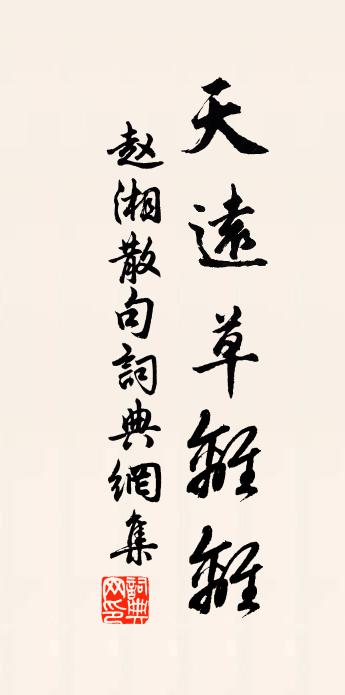 天遠草離離
赵湘散句詞典網集
詞典网印